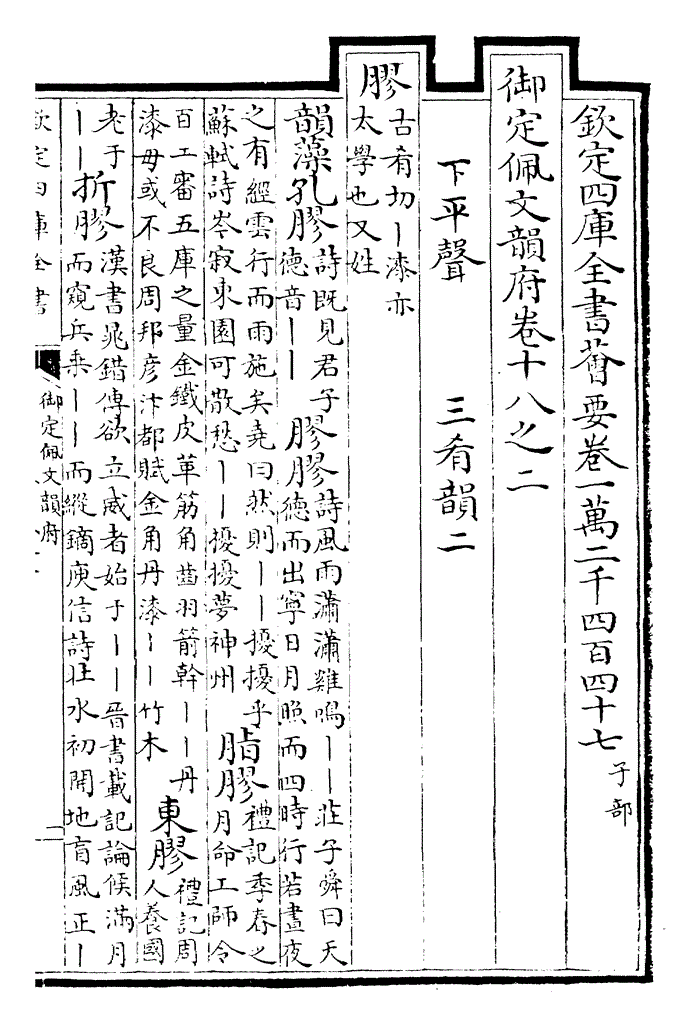 欽定四庫全書薈要卷一萬二千四百四十七子部
御定佩文韻府卷十八之二
下平聲　三肴韻二
膠古肴切丨漆亦
太學也又姓
韻藻孔膠詩既見君子
德音丨丨膠膠詩風雨瀟瀟雞鳴丨丨莊子舜曰天
德而出寧日月照而四時行若晝夜
之有經雲行而雨施矣堯曰然則丨丨擾擾乎
蘇軾詩岑寂東園可散愁丨丨擾擾夢神州脂膠禮記季春之
月命工師令
百工審五庫之量金鐵皮革筋角齒羽箭幹丨丨丹
漆毋或不良周邦彦汴都賦金角丹漆丨丨竹木東膠禮記周
人養國
老于丨丨折膠漢書鼂錯傳欲立威者始于丨丨晉書載記論候滿月
而窺兵乘丨丨而縱鏑庾信詩壯水初開地盲風正丨
欽定四庫全書
御定佩文韻府
二